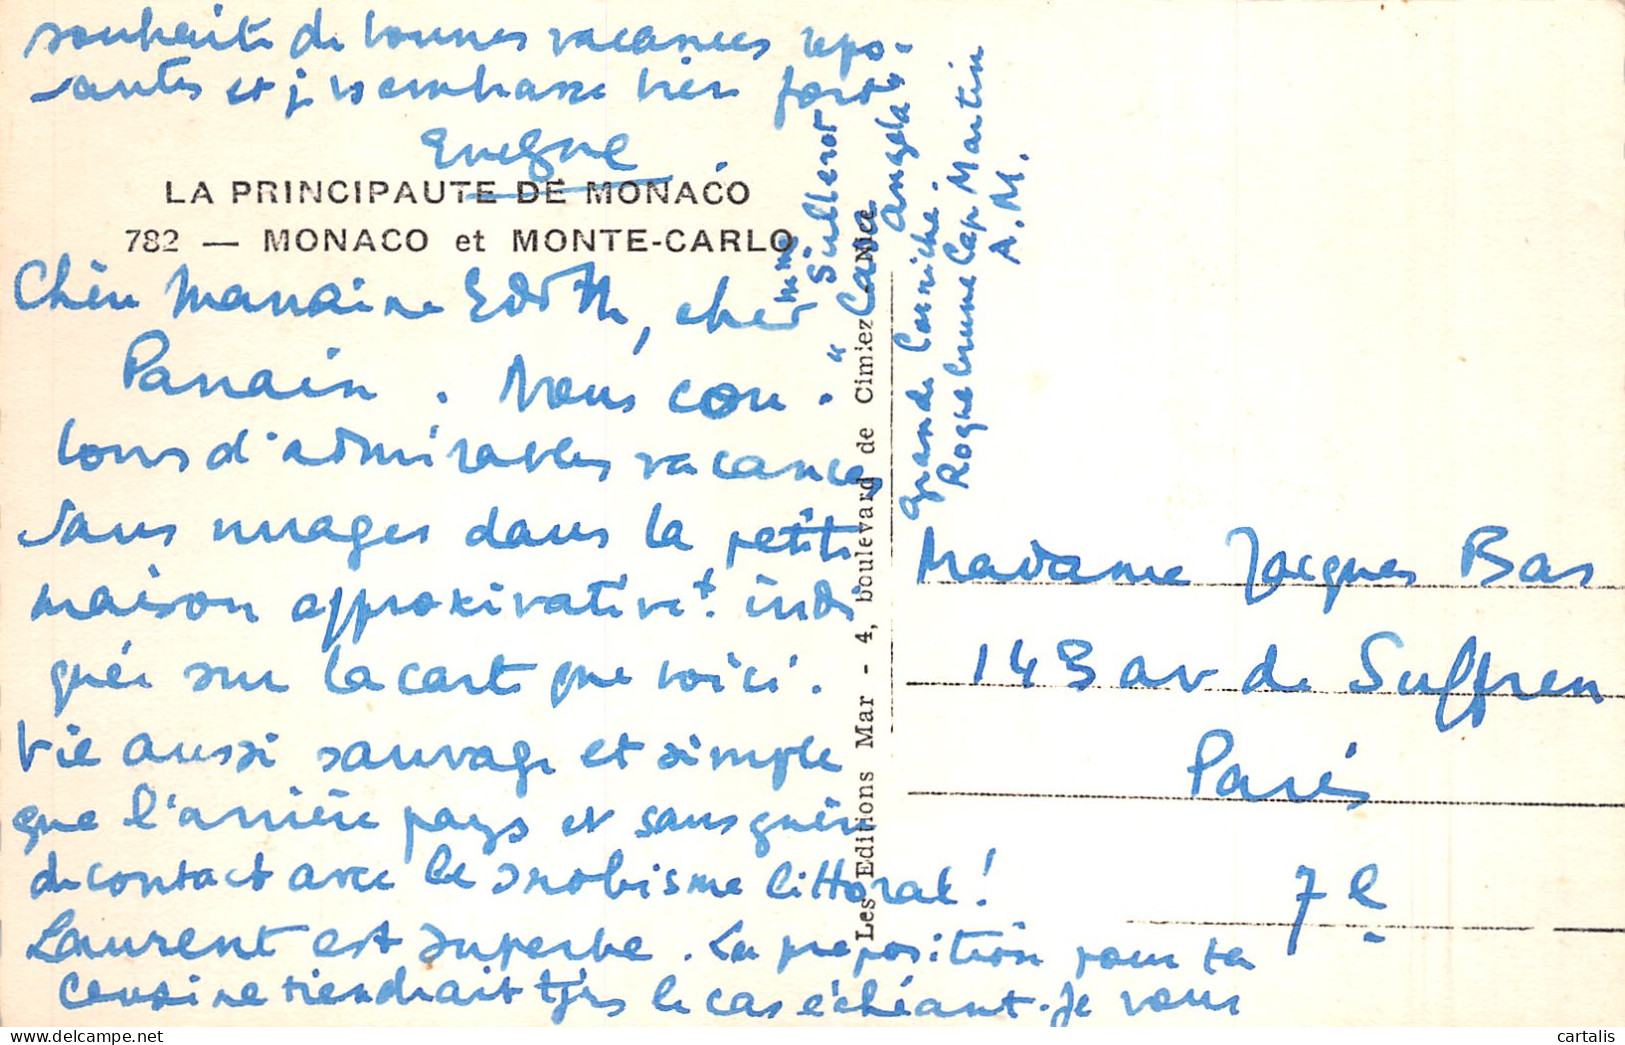 souhaite de bonnes vacances repo-
santes et je vs embrasse bien fort
LA PRINCIPAUTE DE MONACO
782 — MONACO et MONTE-CARLO
Chère Marraine Edith, cher
Parrain. Nous cou-
lons d'admirables vacances
sans nuages dans la petite
maison approximativet. indi
quée sur la carte que voici.
Vie aussi sauvage et simple
que l'arrière pays et sans guère
de contact avec le snobisme littoral!
Laurent est superbe. La proposition pour ta
cousine tiendrait tjrs le cas échéant. Je vous
Mme Sullerot
"Casa Angela"
Grande Corniche.
Roquebrune Cap Martin
A.M.
Les Editions Mar - 4, boulevard de Cimiez Nice
Madame Jacques Bas
143 av de Suffren
Paris
7e
cartalis